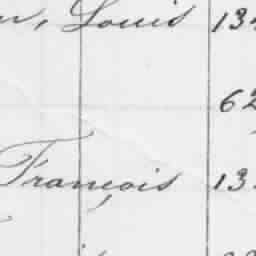 Louis 13
62
François 13